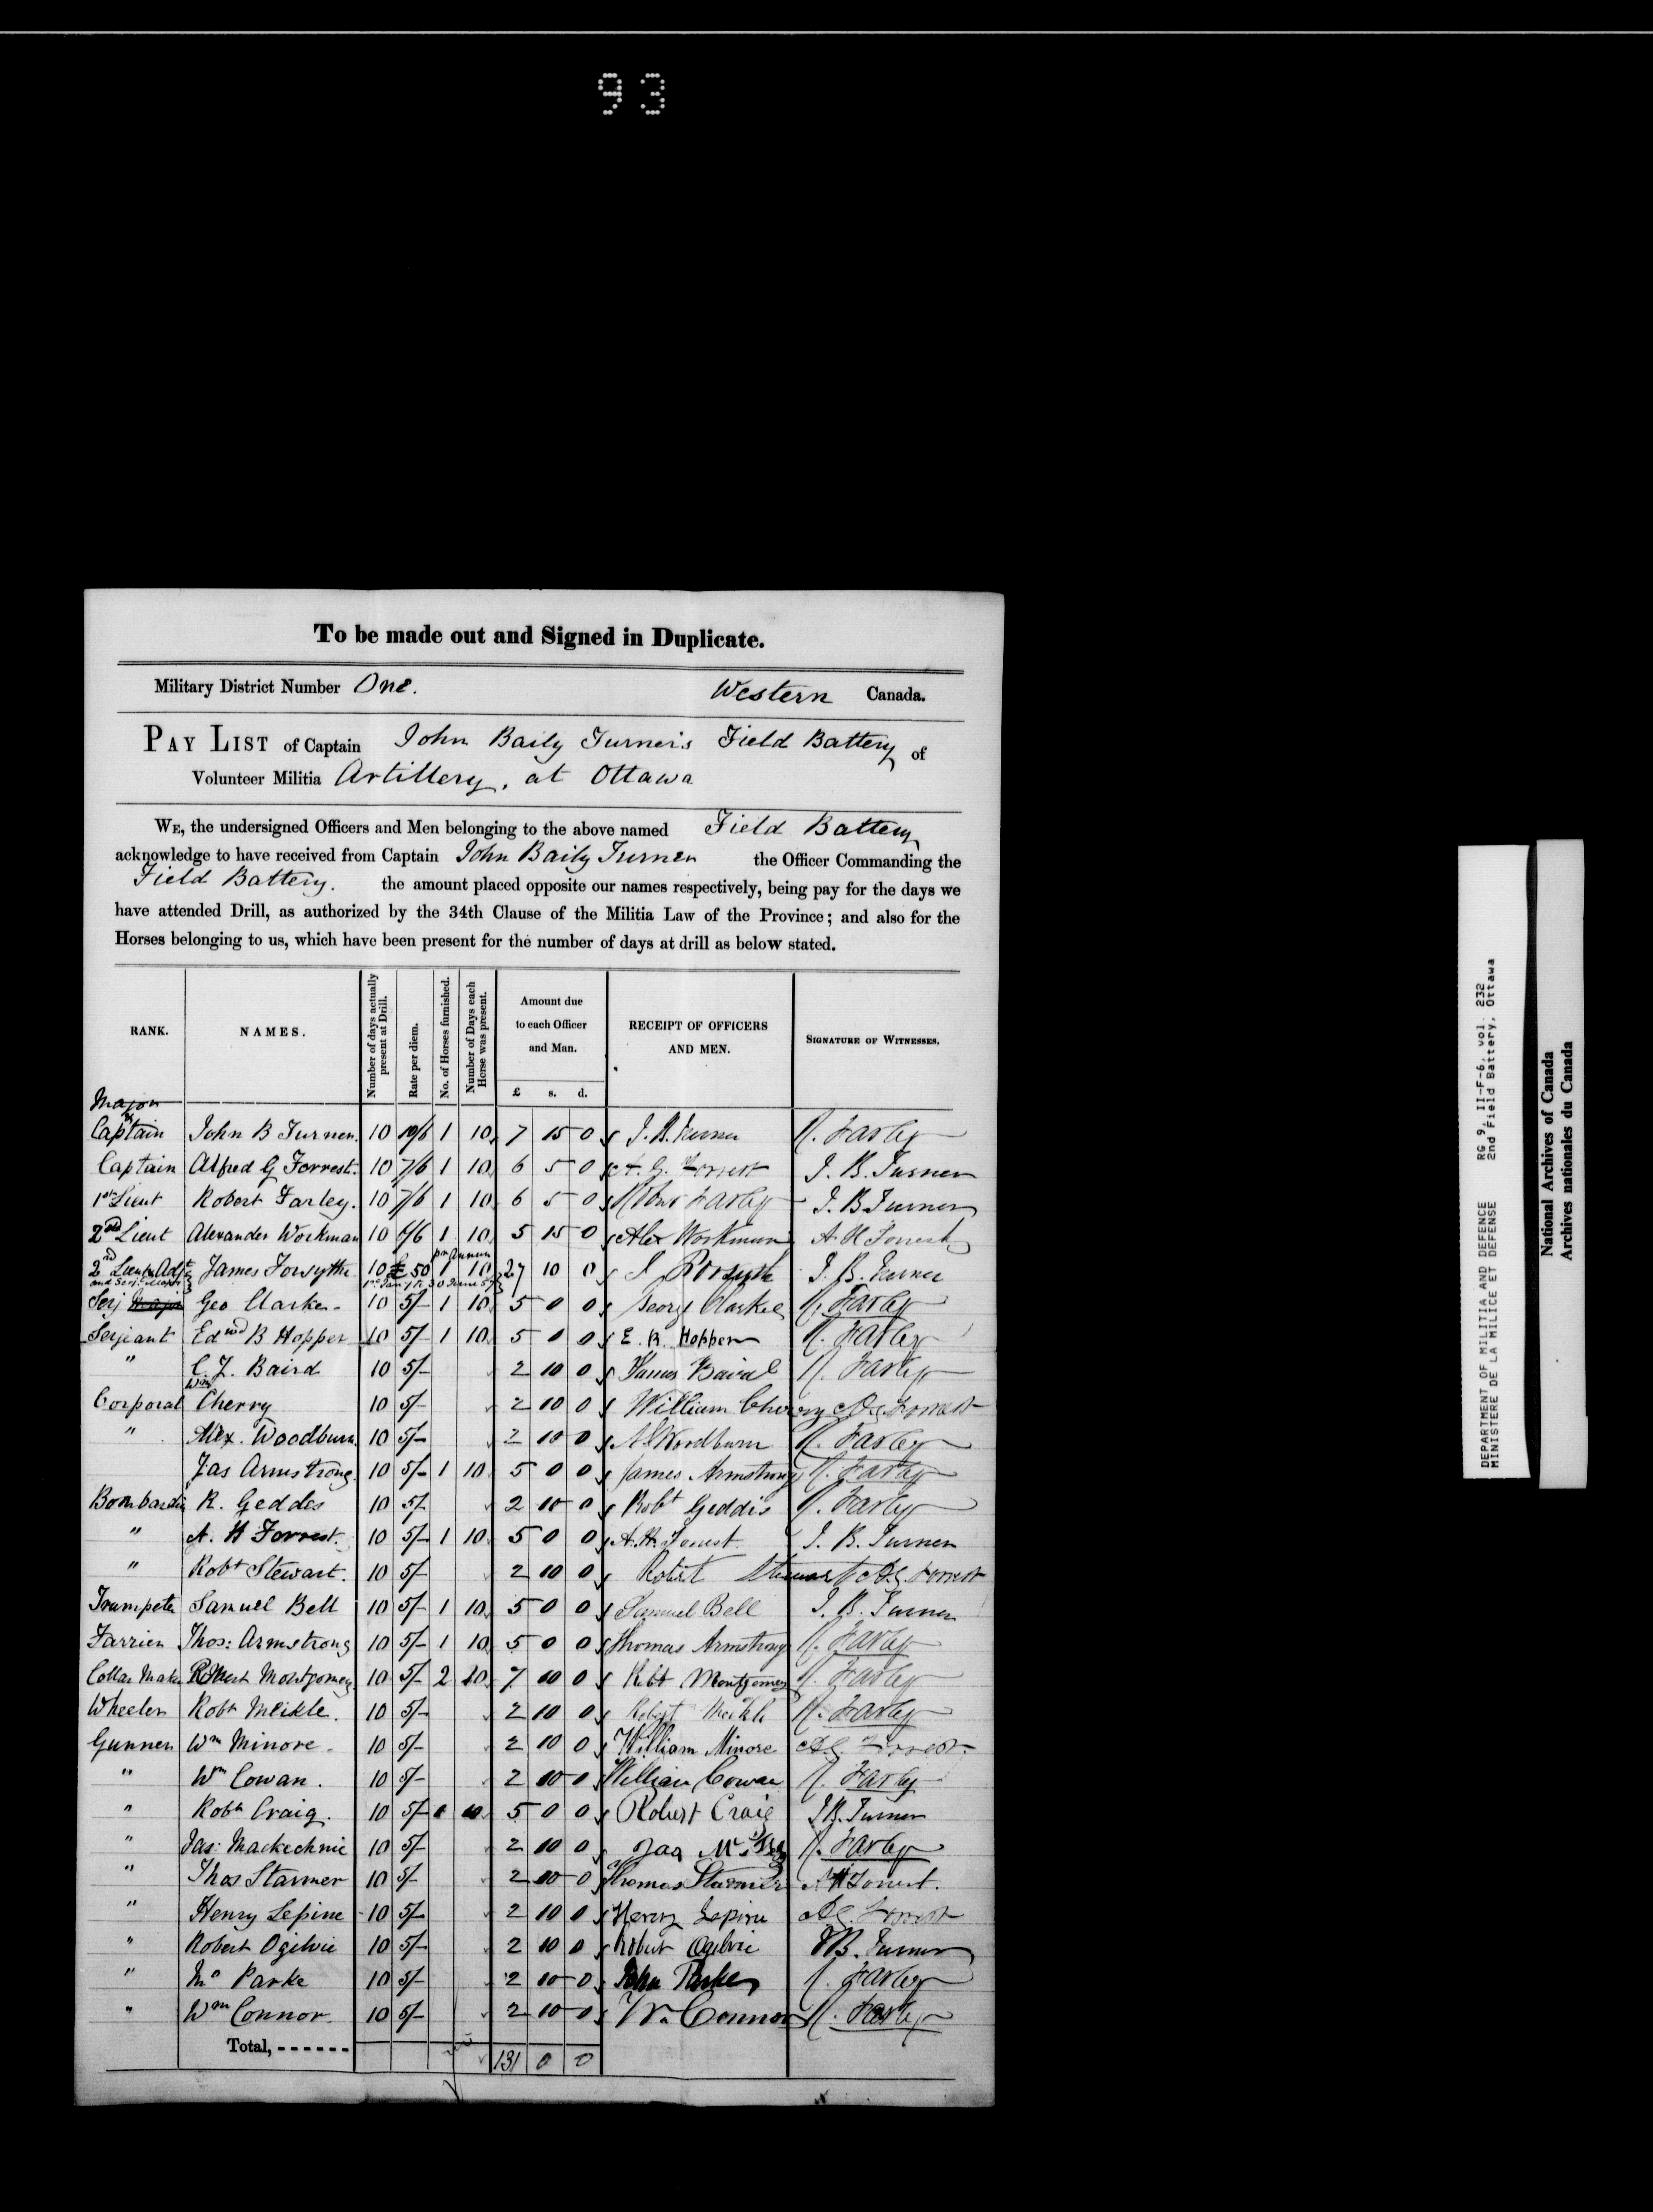 93
To be made out and Signed in Duplicate.
Military District Number One. Western Canada.
PAY LIST of Captain John Baily Turner's Field Battery of
Volunteer Militia Artillery, at Ottawa
WE, the undersigned Officers and Men belonging to the above named Field Battery
acknowledge to have received from Captain John Baily Turner the Officer Commanding the
Field Battery. the amount placed opposite our names respectively, being pay for the days we
have attended Drill, as authorized by the 34th Clause of the Militia Law of the Province; and also for the
Horses belonging to us, which have been present for the number of days at drill as below stated.
RANK. NAMES. Number of days actually present at Drill. Rate per diem. No. of Horses furnished. Number of Days each Horse was present. Amount due to each Officer and Man. RECEIPT OF OFFICERS AND MEN. SIGNATURE OF WITNESSES.
£ s. d.
Major
Captain John B Turner. 10 10/6 1 10 7 15 0 J. B. Turner R. Farley
Captain Alfred G Forrest. 10 7/6 1 10 6 5 0 A. G. Forrest J. B. Turner
1st Lieut Robert Farley. 10 7/6 1 10 6 5 0 Robt Farley J. B Turner
2nd Lieut Alexander Workman 10 6/6 1 10 5 15 0 Alex Workman A. H Forrest
per Annum
2nd Lieut & Adjt James Forsythe 10 £50 1 10 27 10 0 J Forsyth J. B. Turner
1st Jany to 30 June
Serj Major Geo Clarke 10 5/- 1 10 5 0 0 George Clarke R. Farley
Serjeant Edwd B Hopper 10 5/- 1 10 5 0 0 E. B. Hopper R. Farley
" C. J. Baird 10 5/- 2 10 0 James Baird R. Farley
Corporal Wm Cherry 10 5/- 2 10 0 William Cherry A. G. Forrest
" Alex. Woodburn 10 5/- 2 10 0 A Woodburn R. Farley
Jas Armstrong 10 5/- 1 10 5 0 0 James Armstrong R. Farley
Bombardier R. Geddes 10 5/- 2 10 0 Robt Geddis R. Farley
" A. H Forrest. 10 5/- 1 10 5 0 0 A. H. Forrest J. B. Turner
" Robt Stewart. 10 5/- 2 10 0 Robert Stewart A. G. Forrest
Trumpeter Samuel Bell 10 5/- 1 10 5 0 0 Samuel Bell J. B. Turner
Farrier Thos: Armstrong 10 5/- 1 10 5 0 0 Thomas Armstrong R. Farley
Collar Maker Robert Montgomery 10 5/- 2 20 7 10 0 Robt Montgomery R. Farley
Wheeler Robt Meikle. 10 5/- 2 10 0 Robert Meikle R. Farley
Gunner Wm Minore 10 5/- 2 10 0 William Minore A. G. Forrest
" Wm Cowan. 10 5/- 2 10 0 William Cowan R. Farley
" Robt Craig. 10 5/- 1 10 5 0 0 Robert Craig J. B. Turner
" Jas: Mackechnie 10 5/- 2 10 0 Jas R. Farley
" Thos Starmer 10 5/- 2 10 0 Thomas Starmer A H Forrest.
" Henry Lepine 10 5/- 2 10 0 Henry Lepine A. G. Forrest
" Robert Ogilvie 10 5/- 2 10 0 Robert Ogilvie J B. Turner
" Jno Parke 10 5/- 2 10 0 John Parke R. Farley
" Wm Connor 10 5/- 2 10 0 Wm Connor R. Farley
Total, - - - - - - 131 0 0
DEPARTMENT OF MILITIA AND DEFENCE RG 9, II-F-6, vol. 232
MINISTERE DE LA MILICE ET DEFENSE 2nd Field Battery, Ottawa
National Archives of Canada
Archives nationales du Canada